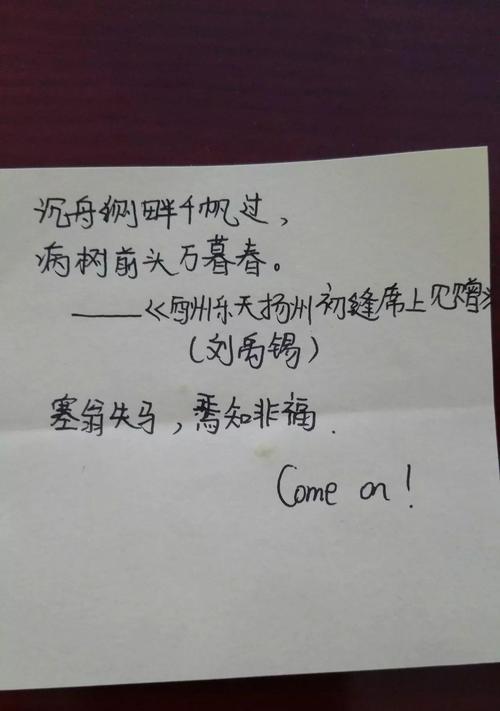 沉舟侧畔千帆过，
病树前头万暮春。
——《酬州乐天扬州初缝席上见赠》
(刘禹锡)
塞翁失马，焉知非福.
Come on!